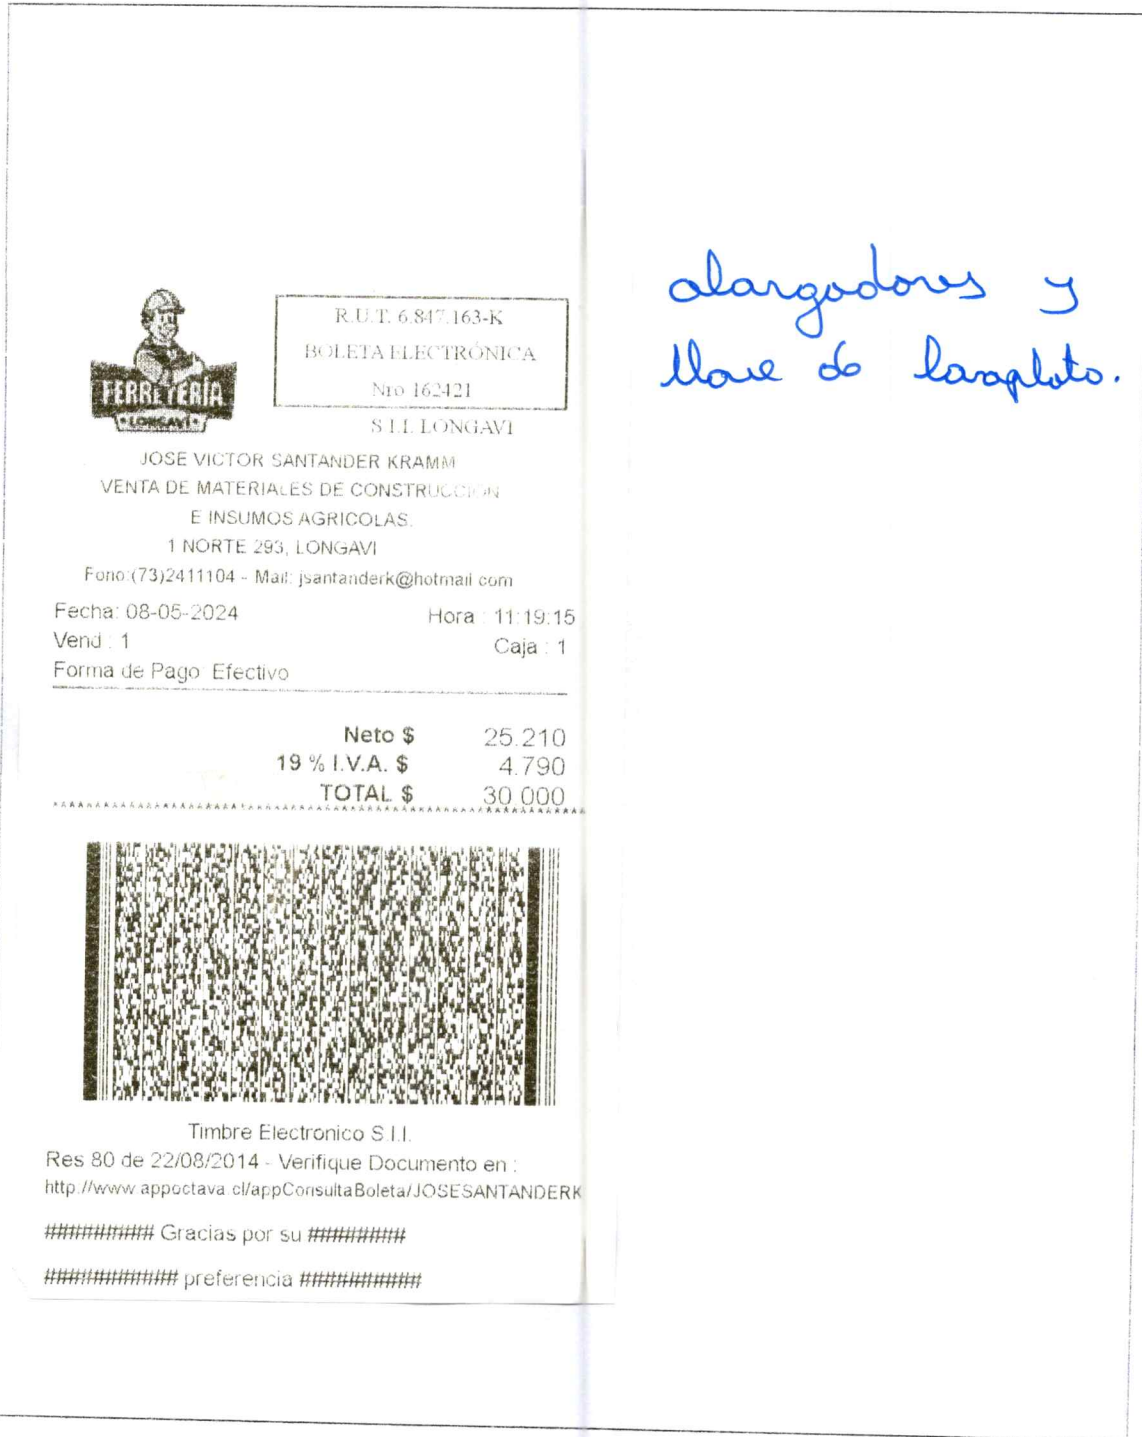 FERRETERÍA
LONGAVI
R.U.T. 6.847.163-K
BOLETA ELECTRÓNICA
Nro 162421
S.I.I. LONGAVI
JOSE VICTOR SANTANDER KRAMM
VENTA DE MATERIALES DE CONSTRUCCION
E INSUMOS AGRICOLAS.
1 NORTE 293, LONGAVI
Fono:(73)2411104 - Mail: jsantanderk@hotmail.com
Fecha: 08-05-2024 Hora : 11:19:15
Vend : 1 Caja : 1
Forma de Pago: Efectivo
Neto $ 25.210
19 % I.V.A. $ 4.790
TOTAL $ 30.000
Timbre Electronico S.I.I.
Res 80 de 22/08/2014 - Verifique Documento en :
http://www.appoctava.cl/appConsultaBoleta/JOSESANTANDERK
######### Gracias por su ########
########### preferencia ##########
alargadores y
llave de lavaplato.